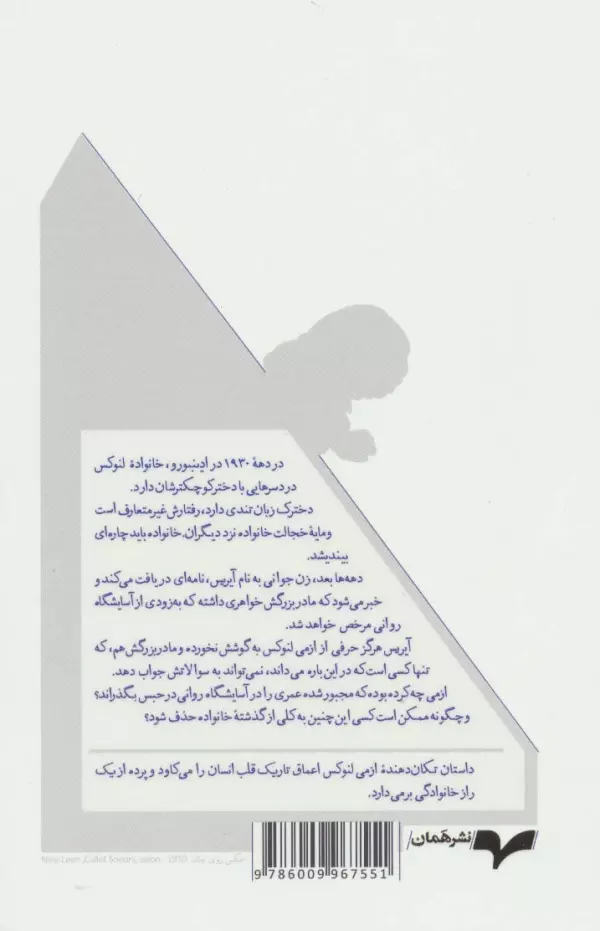 در دههٔ ۱۹۳۰ در ادینبورو، خانوادهٔ لنوکس
دردسرهایی با دختر کوچکترشان دارد.
دخترک زبان تندی دارد، رفتارش غیرمتعارف است
و مایهٔ خجالت خانواده نزد دیگران. خانواده باید چاره‌ای
بیندیشد.
دهه‌ها بعد، زن جوانی به نام آیریس، نامه‌ای دریافت می‌کند و
خبر می‌شود که مادربزرگش خواهری داشته که به‌زودی از آسایشگاه
روانی مرخص خواهد شد.
آیریس هرگز حرفی از ازمی لنوکس به گوشش نخورده و مادربزرگش هم، که
تنها کسی است که در این باره می‌داند، نمی‌تواند به سوالاتش جواب دهد.
ازمی چه کرده بوده که مجبور شده عمری را در آسایشگاه روانی در حبس بگذراند؟
و چگونه ممکن است کسی این چنین به کلی از گذشتهٔ خانواده حذف شود؟
داستان تکان‌دهندهٔ ازمی لنوکس اعماق تاریک قلب انسان را می‌کاود و پرده از یک
راز خانوادگی برمی‌دارد.
نشر هَمان
عکس روی جلد: Nina Leen
9 786009 967551